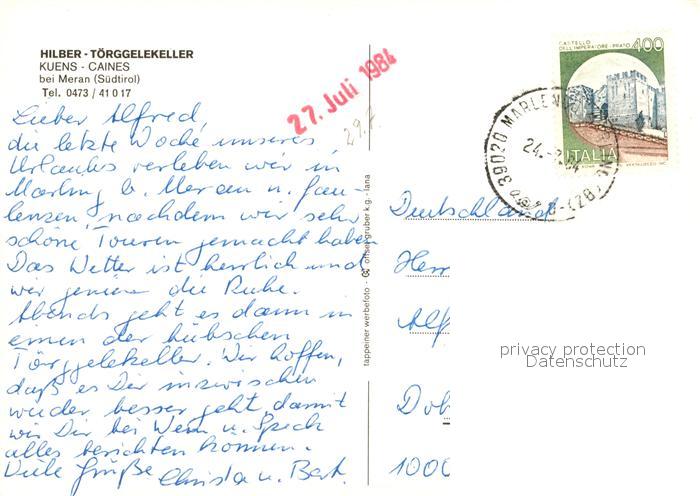 HILBER - TÖRGGELEKELLER
KUENS - CAINES
bei Meran (Südtirol)
Tel. 0473 / 41 0 17
27. Juli 1984
29.7.
Lieber Alfred,
die letzte Woche unseres
Urlaubs verleben wir in
Marling b. Meran u. fau-
lenzen, nachdem wir sehr
schöne Touren gemacht haben.
Das Wetter ist herrlich und
wir genießen die Ruhe.
Abends geht es dann in
einen der hübschen
Törggelekeller. Wir hoffen,
daß es Dir inzwischen
wieder besser geht, damit
wir Dir bei Wein u. Speck
alles berichten können.
Viele Grüße Christa u. Bert.
tappeiner werbefoto - offset gruber k.g. - lana
CASTELLO
DELL'IMPERATORE - PRATO 400
ITALIA
39020 MARLENGO
(BZ)
Deutschland
Herrn
Alf
Dob
1000
privacy protection
Datenschutz